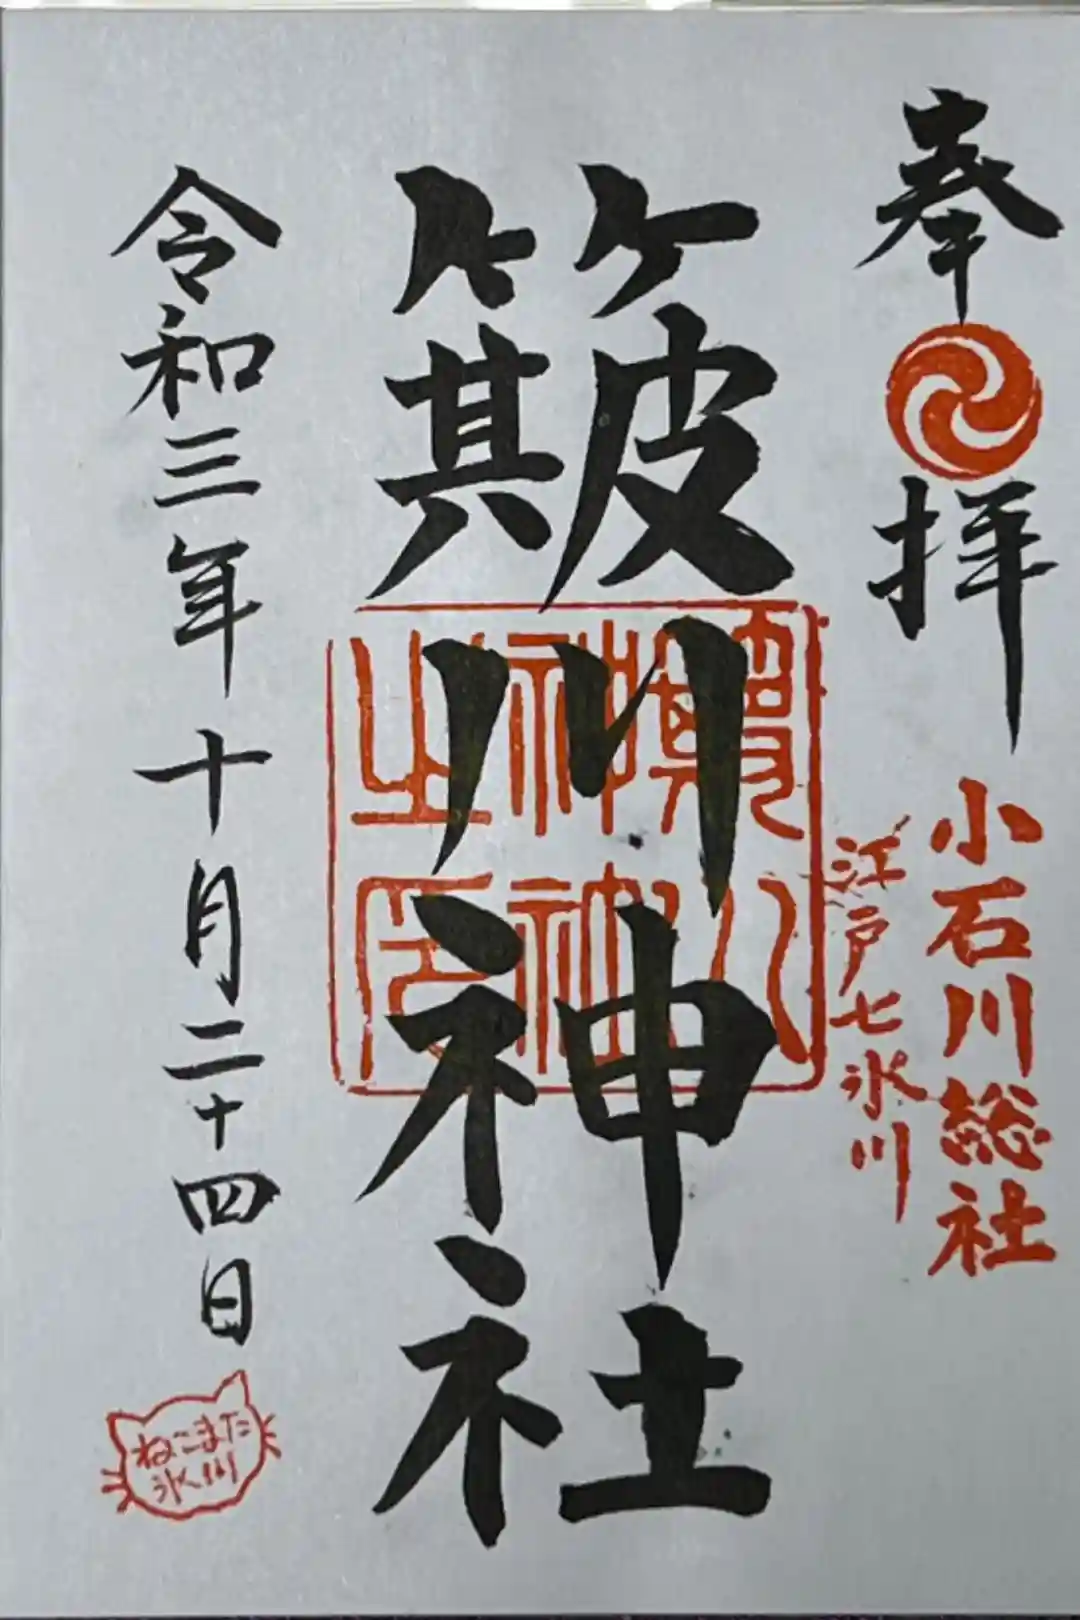 奉拝
小石川総社
江戸七氷川
簸川神社
令和三年十月二十四日
ねこまた
氷川